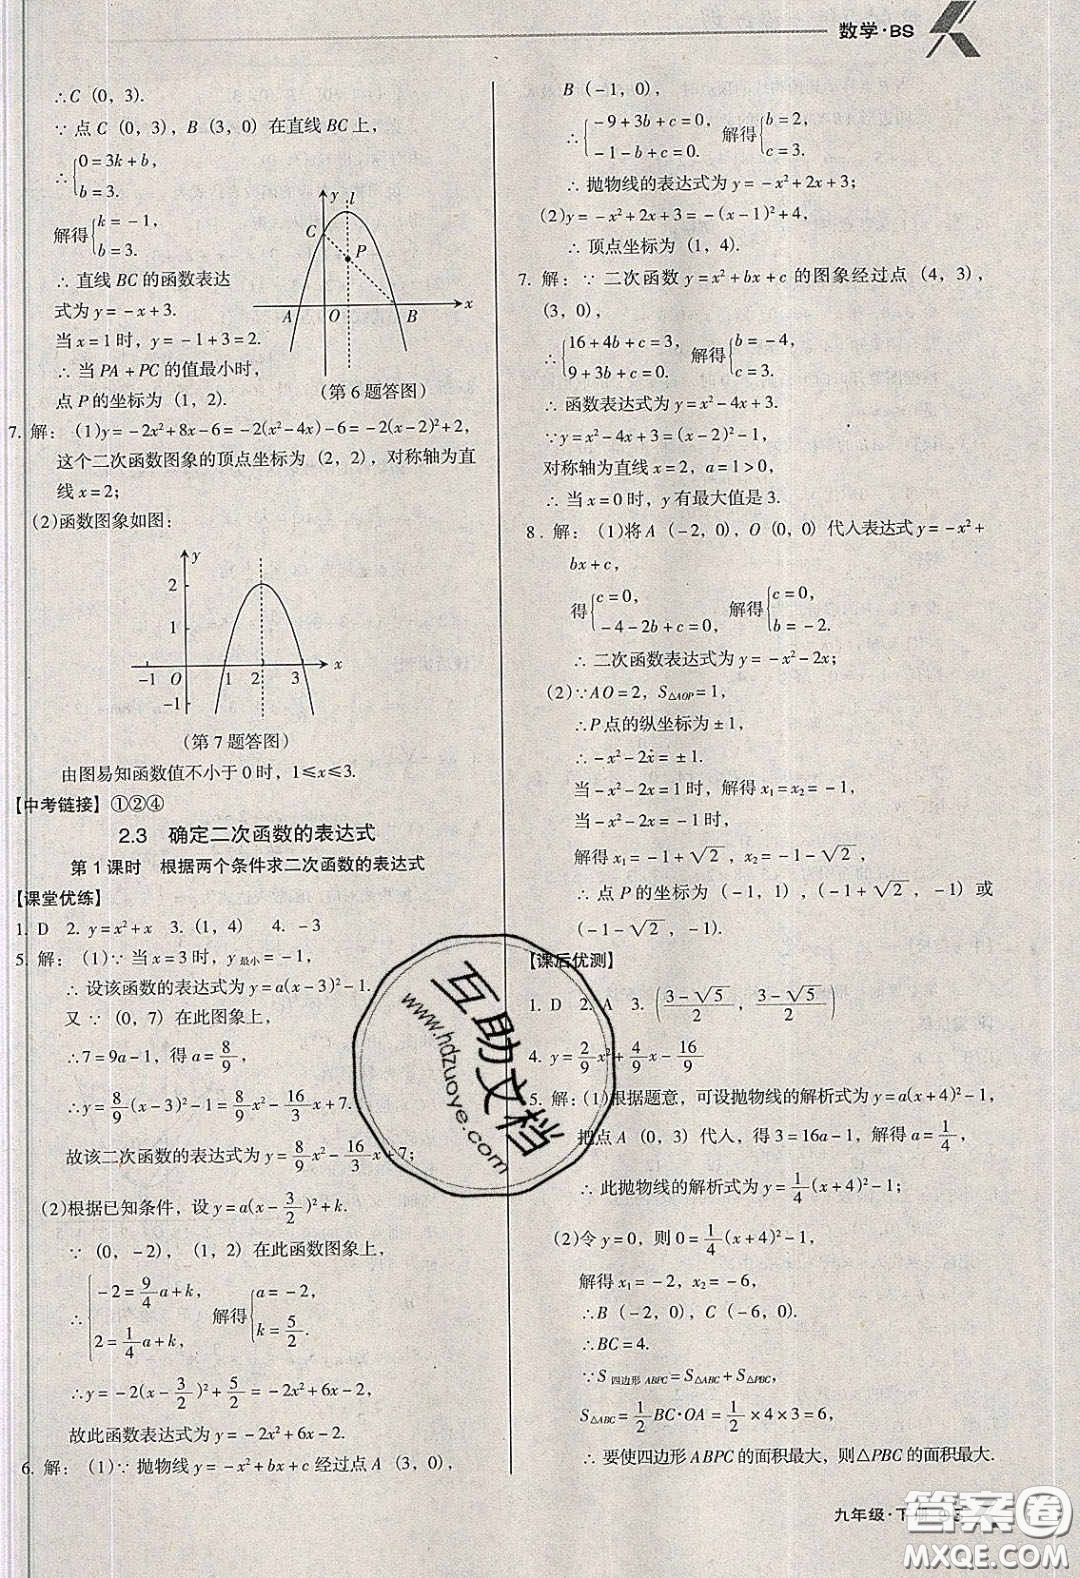 数学·BS
∴C (0, 3).
∵ 点 C (0, 3), B (3, 0) 在直线 BC 上,
∴ { 0=3k+b,
b=3.
解得 { k=-1,
b=3.
∴ 直线 BC 的函数表达
式为 y=-x+3.
当 x=1 时, y=-1+3=2.
∴ 当 PA+PC 的值最小时,
点 P 的坐标为 (1, 2).
y l
C P
A O B x
(第 6 题答图)
7. 解: (1)y=-2x²+8x-6=-2(x²-4x)-6=-2(x-2)²+2,
这个二次函数图象的顶点坐标为 (2, 2), 对称轴为直
线 x=2;
(2)函数图象如图:
y
2
1
-1 O 1 2 3 x
-1
(第 7 题答图)
由图易知函数值不小于 0 时, 1≤x≤3.
【中考链接】①②④
2.3 确定二次函数的表达式
第 1 课时 根据两个条件求二次函数的表达式
【课堂优练】
1. D 2. y=x²+x 3. (1, 4) 4. -3
5. 解: (1)∵ 当 x=3 时, y最小=-1,
∴ 设该函数的表达式为 y=a(x-3)²-1.
又 ∵ (0, 7) 在此图象上,
∴7=9a-1, 得 a=8/9,
∴y=8/9(x-3)²-1=8/9x²-16/3x+7.
故该二次函数的表达式为 y=8/9x²-16/3x+7;
(2)根据已知条件, 设 y=a(x-3/2)²+k.
∵ (0, -2), (1, 2) 在此函数图象上,
∴ { -2=9/4a+k,
2=1/4a+k,
解得 { a=-2,
k=5/2.
∴y=-2(x-3/2)²+5/2=-2x²+6x-2.
故此函数表达式为 y=-2x²+6x-2.
6. 解: (1)∵ 抛物线 y=-x²+bx+c 经过点 A (3, 0),
B (-1, 0),
∴ { -9+3b+c=0,
-1-b+c=0.
解得 { b=2,
c=3.
∴ 抛物线的表达式为 y=-x²+2x+3;
(2)y=-x²+2x+3=-(x-1)²+4,
∴ 顶点坐标为 (1, 4).
7. 解: ∵ 二次函数 y=x²+bx+c 的图象经过点 (4, 3),
(3, 0),
∴ { 16+4b+c=3,
9+3b+c=0.
解得 { b=-4,
c=3.
∴ 函数表达式为 y=x²-4x+3.
∵y=x²-4x+3=(x-2)²-1,
对称轴为直线 x=2, a=1>0,
∴ 当 x=0 时, y 有最大值是 3.
8. 解: (1)将 A (-2, 0), O (0, 0) 代入表达式 y=-x²+
bx+c,
得 { c=0,
-4-2b+c=0,
解得 { c=0,
b=-2.
∴ 二次函数表达式为 y=-x²-2x;
(2)∵AO=2, S△AOP=1,
∴P 点的纵坐标为 ±1,
∴-x²-2x=±1.
当 -x²-2x=1 时, 解得 x₁=x₂=-1,
当 -x²-2x=-1 时,
解得 x₁=-1+√2, x₂=-1-√2,
∴ 点 P 的坐标为 (-1, 1), (-1+√2, -1) 或
(-1-√2, -1).
【课后优测】
1. D 2. A 3. ((3-√5)/2, (3-√5)/2)
4. y=2/9x²+4/9x-16/9
5. 解: (1)根据题意, 可设抛物线的解析式为 y=a(x+4)²-1,
把点 A (0, 3) 代入, 得 3=16a-1, 解得 a=1/4,
∴ 此抛物线的解析式为 y=1/4(x+4)²-1;
(2)令 y=0, 则 0=1/4(x+4)²-1,
解得 x₁=-2, x₂=-6,
∴B (-2, 0), C (-6, 0).
∴BC=4.
∵S四边形ABPC=S△ABC+S△PBC,
S△ABC=1/2BC·OA=1/2×4×3=6,
∴ 要使四边形 ABPC 的面积最大, 则△PBC 的面积最大.
互助文档
www.hdzuoye.com
九年级·下
答案圈
MXQE.COM